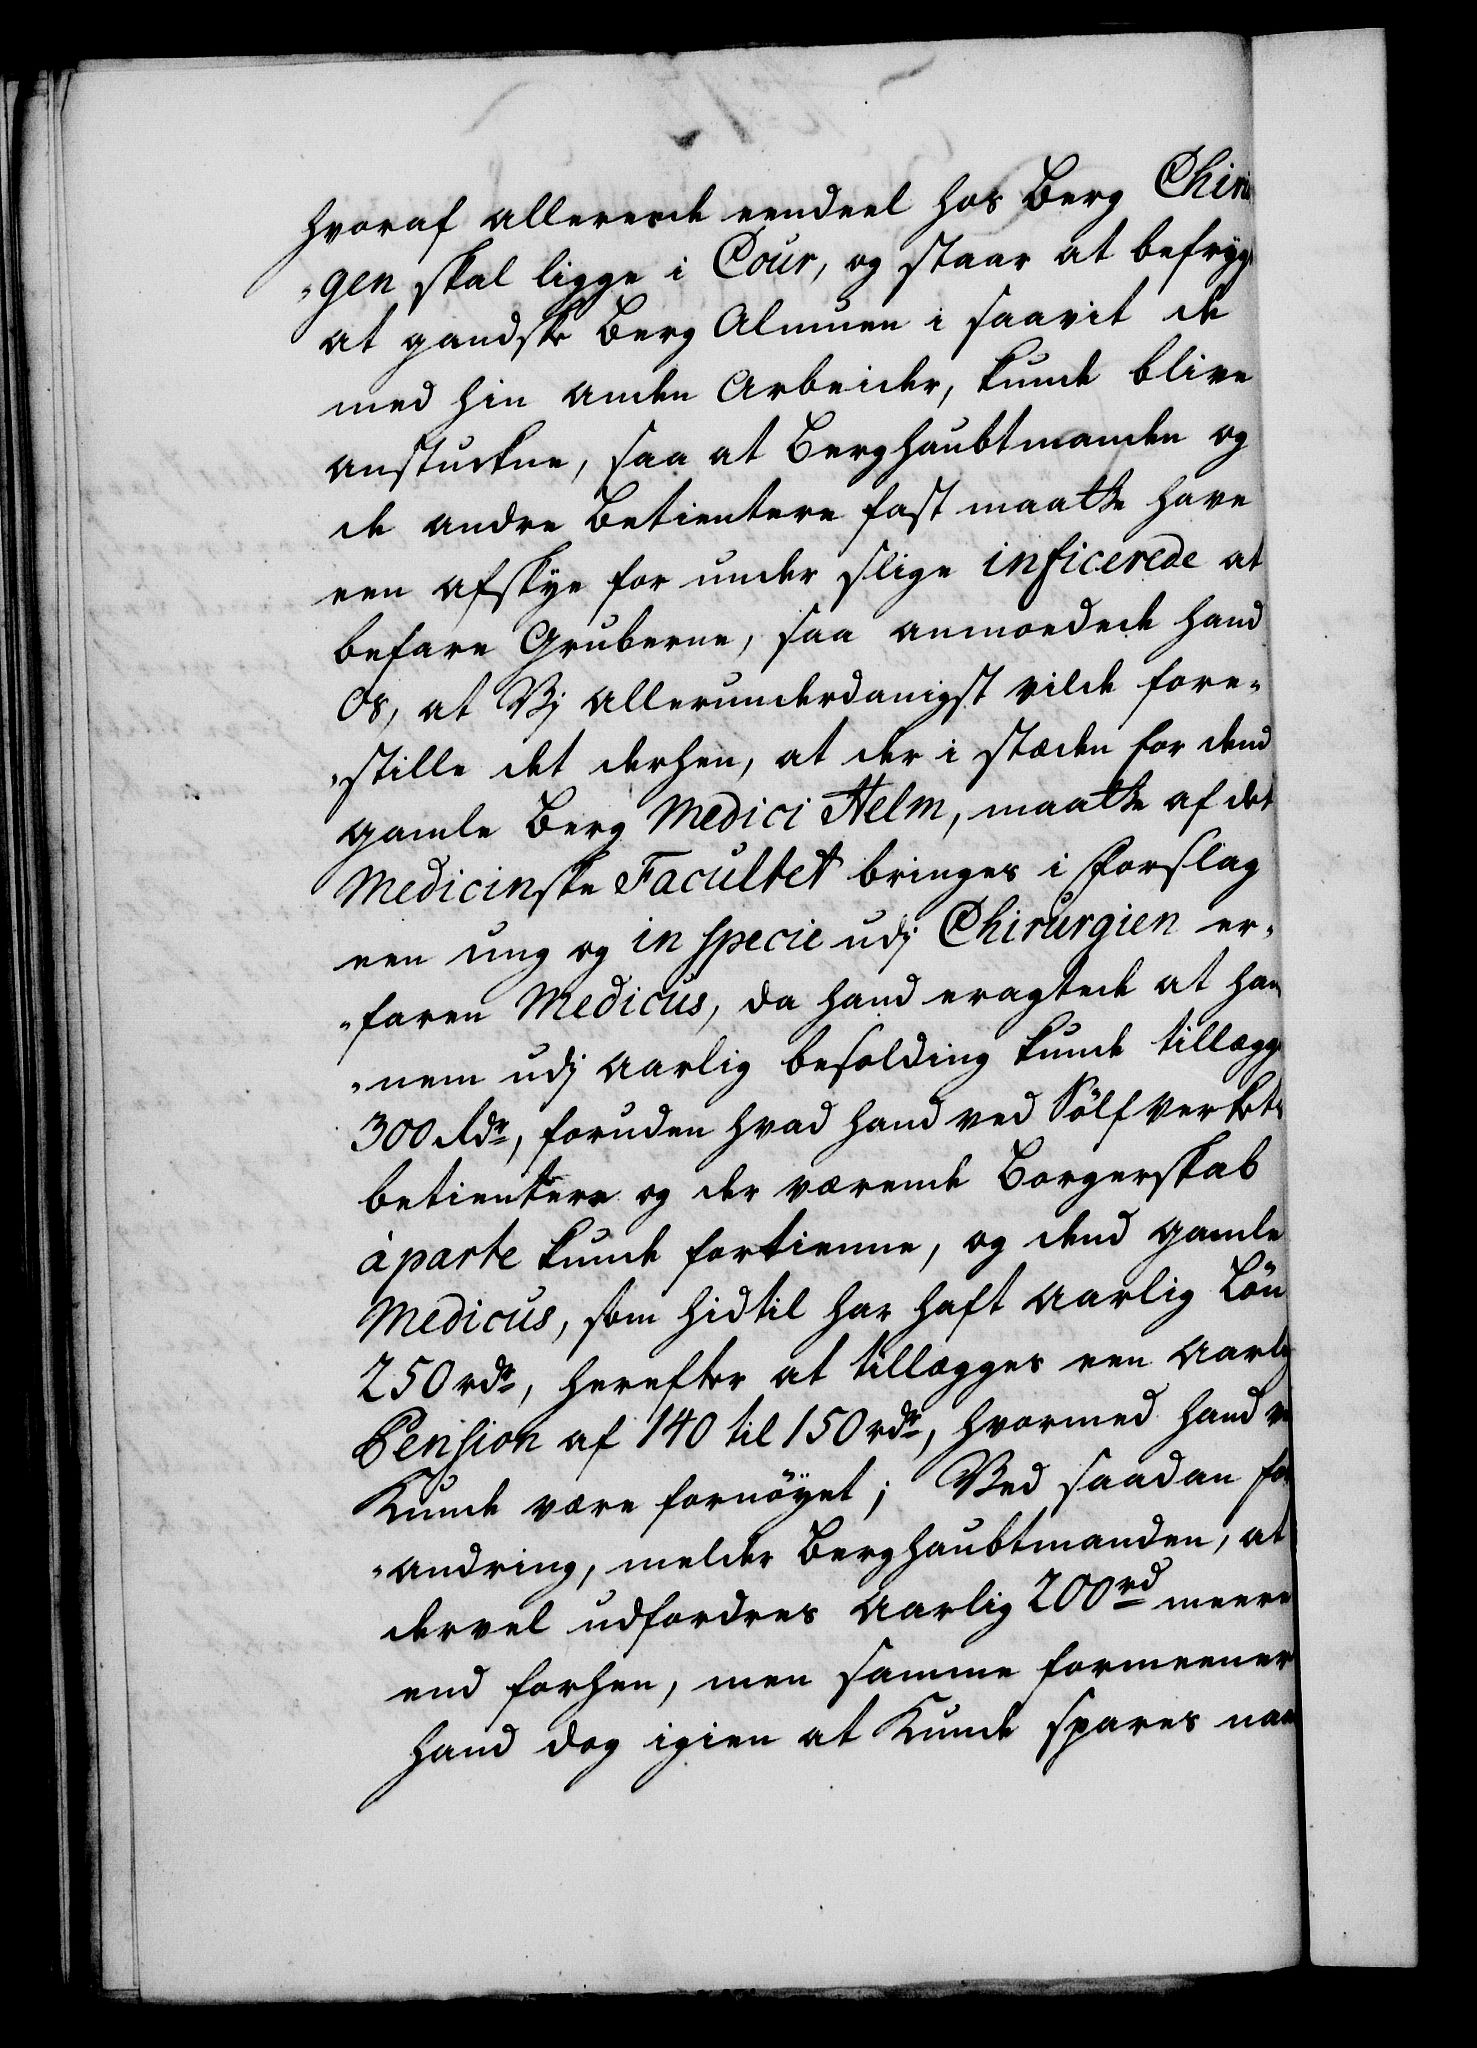 hvoraf allereede eendeel hos Berg Chiru
„gen skal ligge i Cour, og staar at befryg
at gandske Berg Almuen i saavit de
med hin anden Arbeider, kunde blive
anstuckne, saa at Berghaubtmanden og
de andre Betientere fast maatte have
een afskye for under slige inficerede at
befare Gruberne, saa anmoedede hand
Os, at Vj allerunderdanigst vilde fore„
„stille det derhen, at der i stæden for dend
gamle Berg Medici Helm, maatte af det
Medicinske Facultet bringes i Forslag
een ung og in specie udj Chirurgien er„
„faren Medicus, da hand eragtede at han
„nem udj aarlig besolding kunde tillægge
300 Rdr, foruden hvad hand ved Sölfverkets
betientere og der værende Borgerskab
à parte kunde fortienne, og dend gamle
Medicus, som hidtil har haft aarlig Lön
250 rdr, herefter at tillægges een aarlig
Pension af 140 til 150 rdr, hvormed hand v
Kunde være fornöyet; Ved saadan for
„andring, melder Berghaubtmanden, at
dervel udfordres aarlig 200 rd meere
end forhen, men samme formeener
hand dog igien at Kunde spares naar